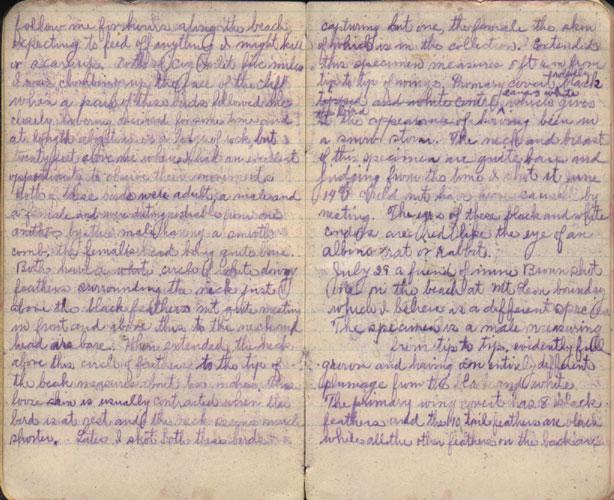 follow me for hours along the beach
expecting to feed off anything I might kill
or scare up. Both
I was climbing up the face of the cliff
when a pair of these birds followed me
closely hovering around for some time and
at length alighting on a ledge of rock but
twenty feet above me where I had an excellent
opportunity to observe their movements
Both of these birds were adult, a male and
a female and were distinguishable from one
another by the male having a smooth
comb, the female's head being quite bare.
Both have a circle of white downy
feathers surrounding the neck just
above the black feathers not quite meeting
in front and above this to the neck and
head are bare. When extended, the neck
above this circle of feathers to the tip of
the beak measures about ten inches. This
loose skin is usually contracted when the
bird is at rest and the neck seems much
shorter. Later I shot both these birds
capturing but one, the female the skin
of which is in the collection. Extended
this specimen measures 9 ft 6 in from
tip to tip of wings. Primary covert black
tipped and white which gives
the bird the appearance of having been in
a snow storm. The neck and breast
of this specimen are quite bare and
judging from the time I shot it June
19th could not have been caused by
nesting. The eyes of these black and white
condors are red like the eye of an
albino rat or rabbit.
July 29 a friend of mine Brown shot
one on the beach at Mt boundary
which I believe is a different species.
The specimen is a male measuring
from tip to tip, evidently full
grown and having an entirely different
plumage from the black and white
The primary wing covert has 8 black
feathers and the 10 tail feathers are black
while all the other feathers on the back are